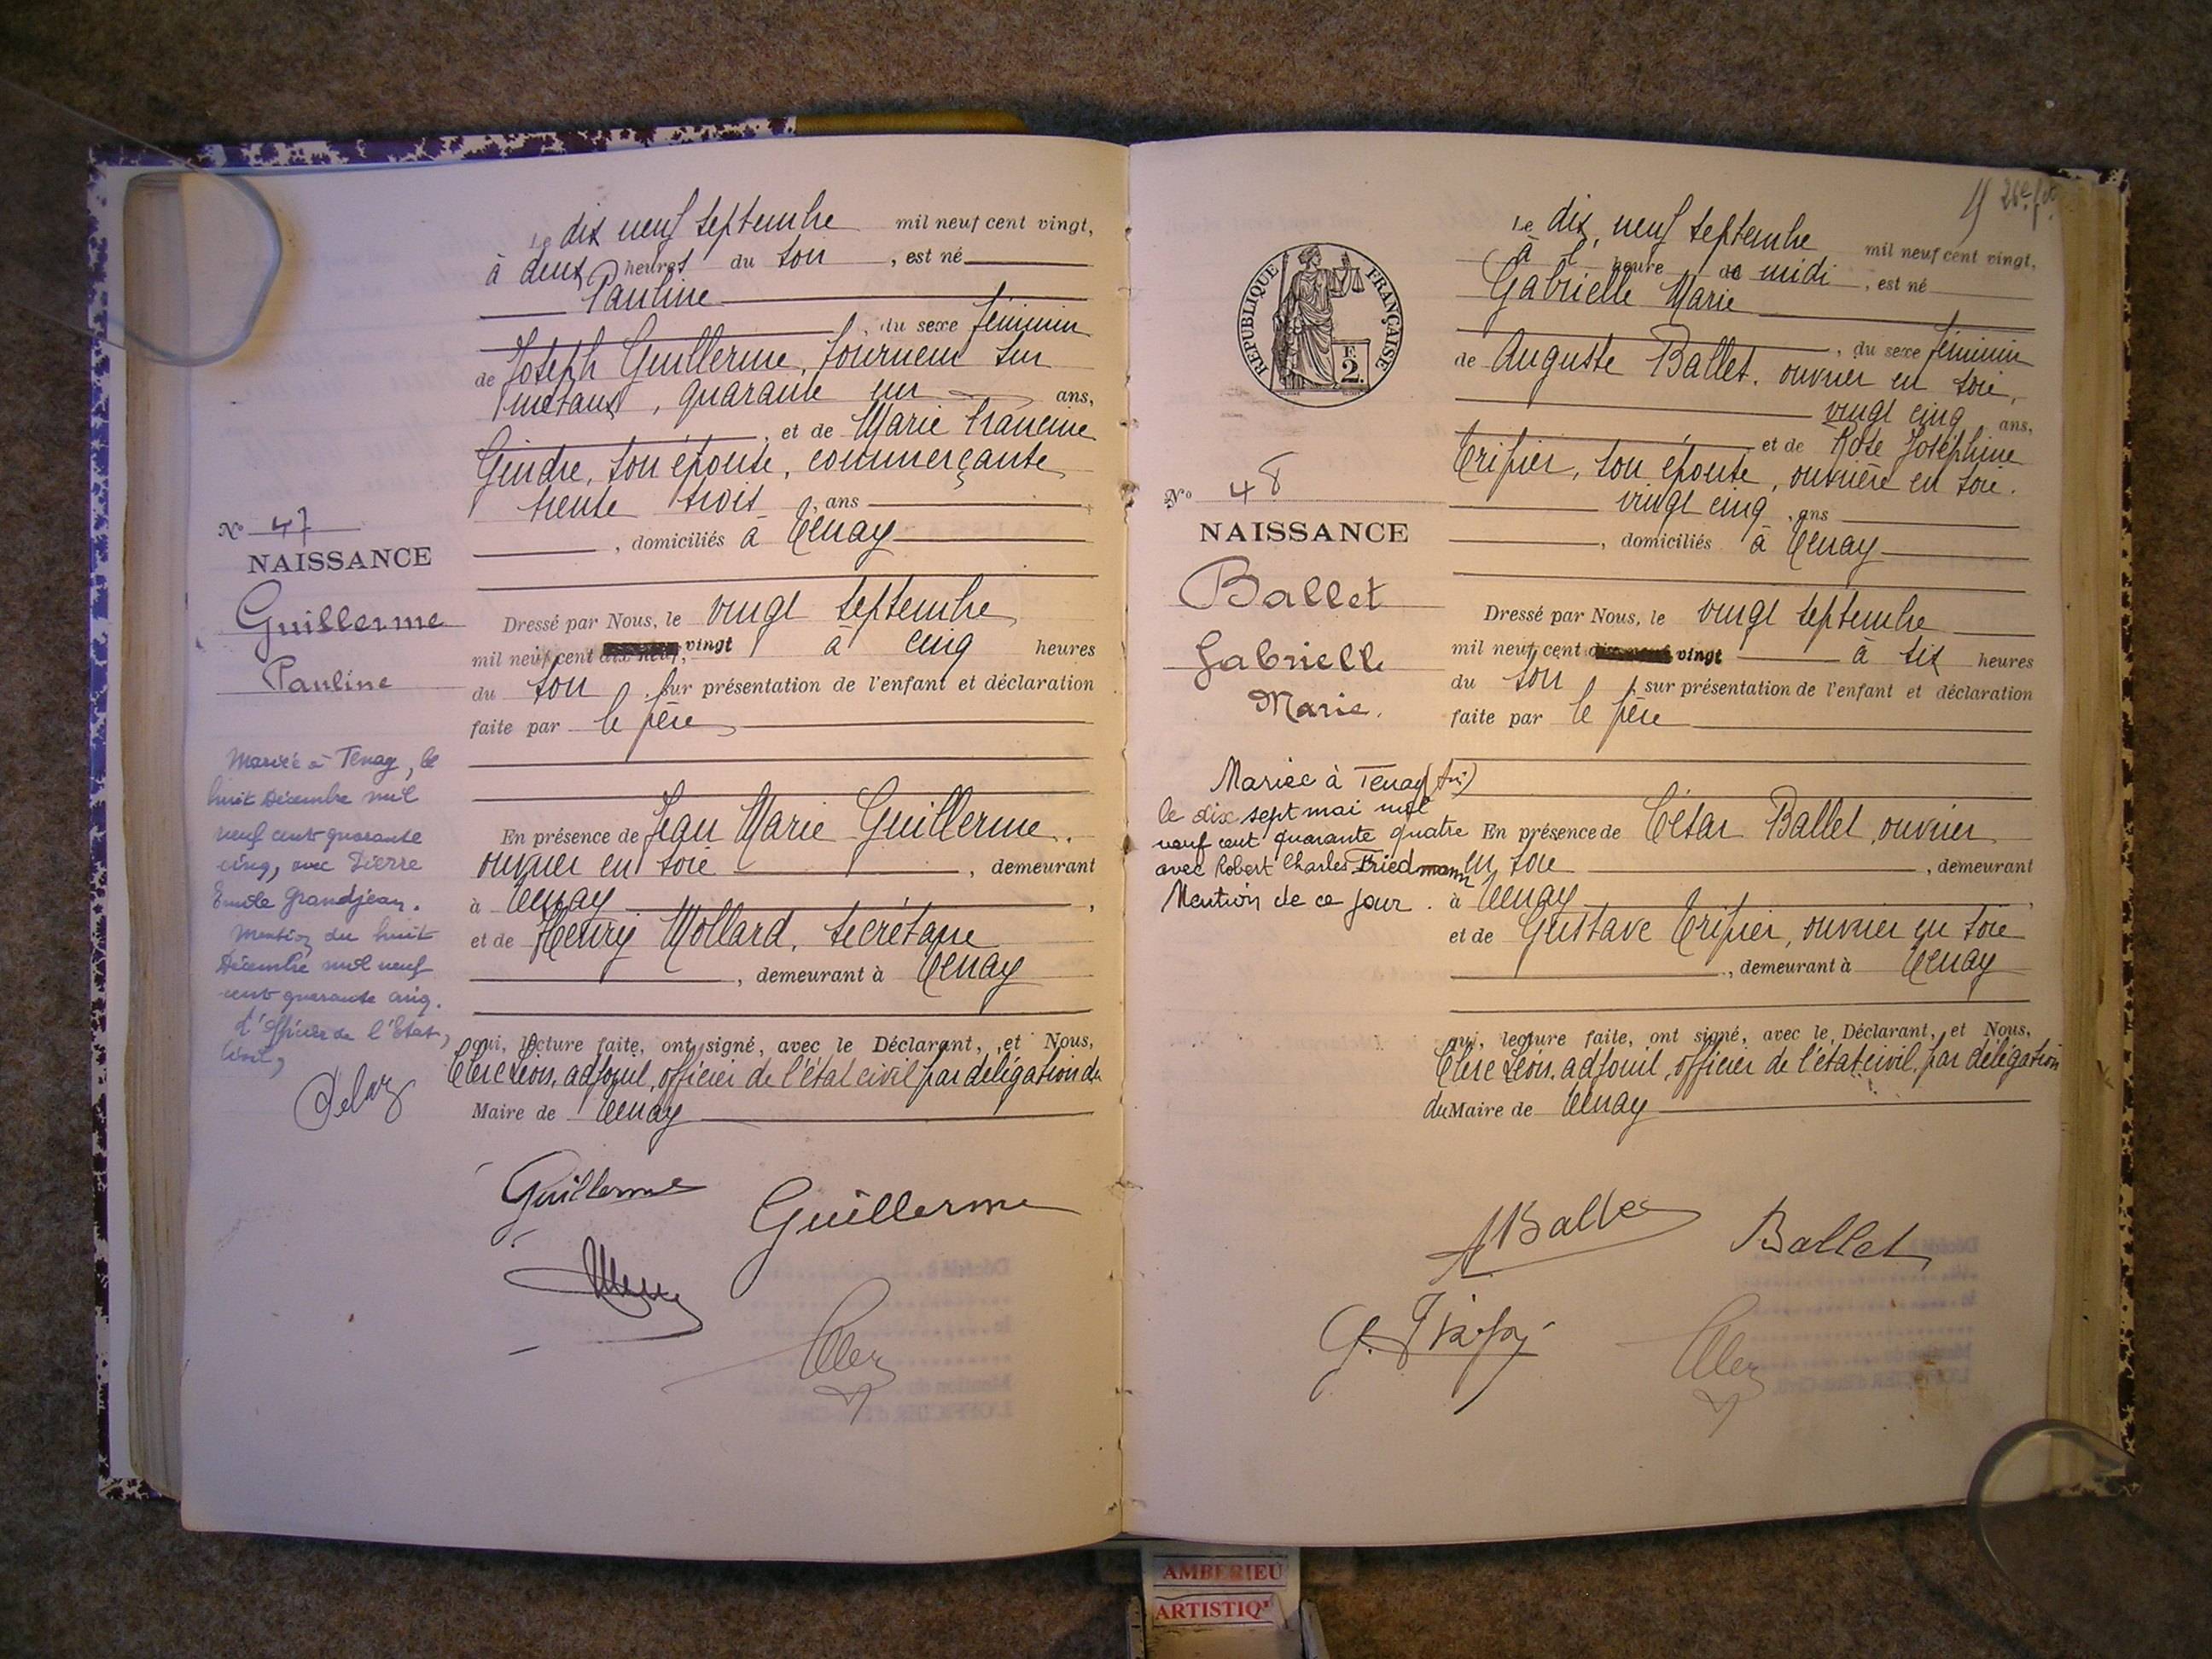 Le dix neuf septembre mil neuf cent vingt,
à deux heures du soir, est né
Pauline
, du sexe féminin
de Joseph Guillerme, tourneur sur
métaux, quarante un ans,
et de Marie Francine
Gindre, son épouse, commerçante
trente trois, ans
, domiciliés à Tenay
Nº 47
NAISSANCE
Guillerme
Pauline
Dressé par Nous, le vingt septembre
mil neuf cent vingt à cinq heures
du soir, sur présentation de l'enfant et déclaration
faite par le père
Mariée à Tenay, le
huit Décembre mil
neuf cent quarante
cinq, avec Pierre
Emile Grandjean.
Mention du huit
Décembre mil neuf
cent quarante cinq.
L'officier de l'Etat
Civil,
En présence de Jean Marie Guillerme.
ouvrier en soie, demeurant
à Tenay,
et de Henry Mollard, secrétaire
, demeurant à Tenay
qui, lecture faite, ont signé, avec le Déclarant, et Nous,
Clerc Léon, adjoint, officier de l'état civil par délégation du
Maire de Tenay
Guillerme
Guillerme
26e
Le dix neuf septembre mil neuf cent vingt,
à l heure de midi, est né
Gabrielle Marie
, du sexe féminin
de Auguste Ballet, ouvrier en soie,
vingt cinq ans,
et de Rose Joséphine
Tripier, son épouse, ouvrière en soie.
vingt cinq, ans
, domiciliés à Tenay
REPUBLIQUE FRANÇAISE
F.
2.
Nº 48
NAISSANCE
Ballet
Gabrielle
Marie.
Dressé par Nous, le vingt septembre
mil neuf cent vingt à six heures
du soir, sur présentation de l'enfant et déclaration
faite par le père
Mariée à Tenay (Ain)
le dix sept mai mil
neuf cent quarante quatre
avec Robert Charles Friedmann
Mention de ce jour.
En présence de César Ballet, ouvrier
en soie, demeurant
à Tenay
et de Gustave Tripier, ouvrier en soie
, demeurant à Tenay
qui, lecture faite, ont signé, avec le Déclarant, et Nous,
Clerc Léon, adjoint, officier de l'état civil, par délégation
du Maire de Tenay
A Ballet
Ballet
AMBERIEU
ARTISTIQ